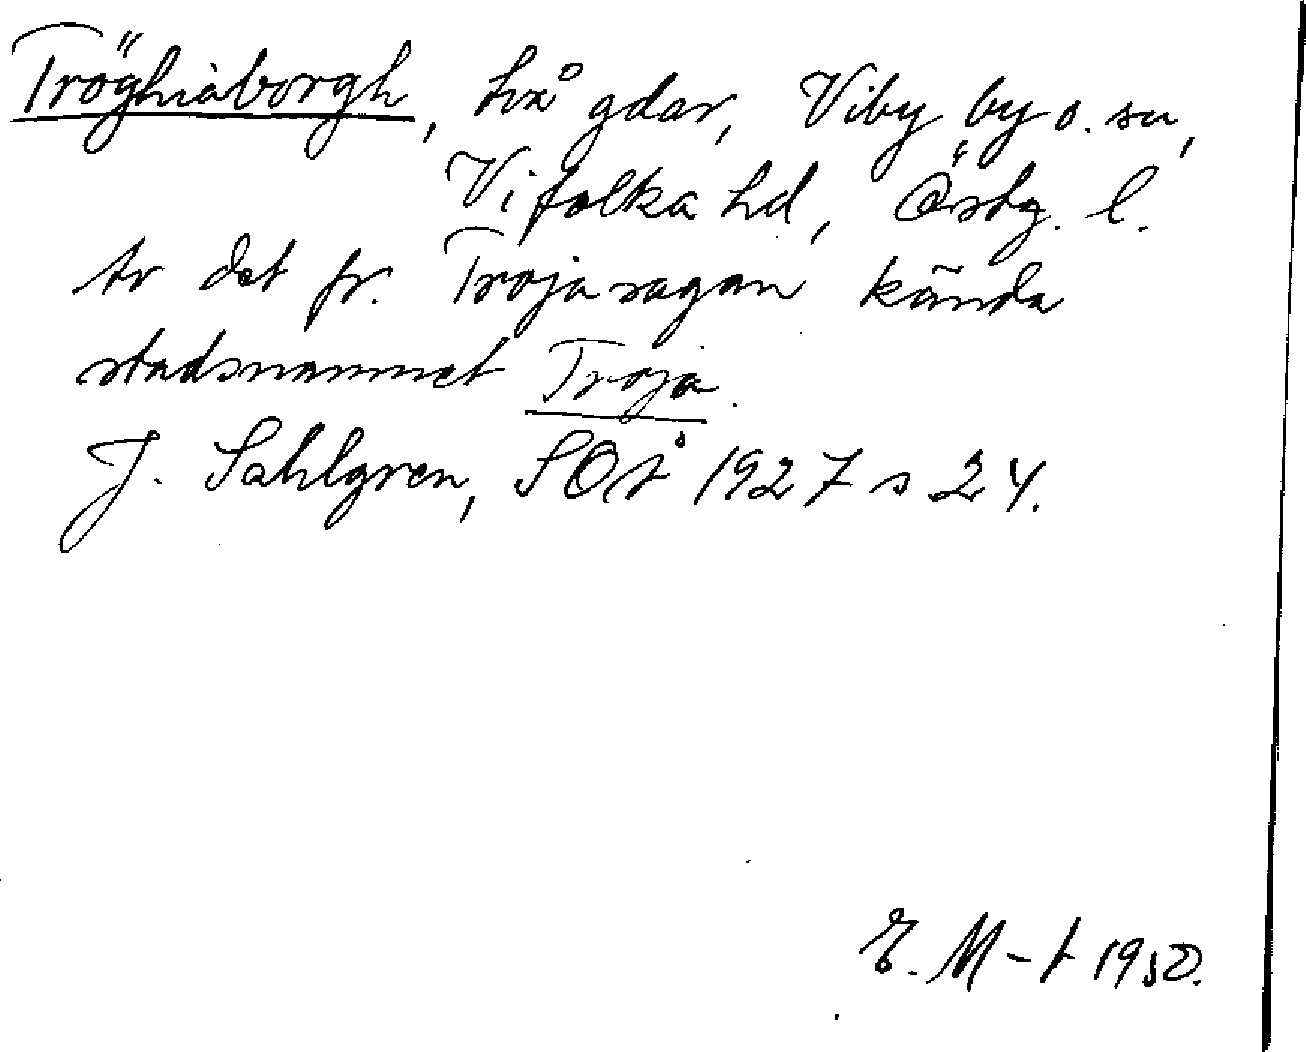 Tröghiaborgh, två gdar, Viby by o. sn,
Vifolka hd, Östg. l.
är det fr. Trojasagan kända
stadsnamnet Troja.
J. Sahlgren, SOÅ 1927 s 24.
E. M-t 1950.